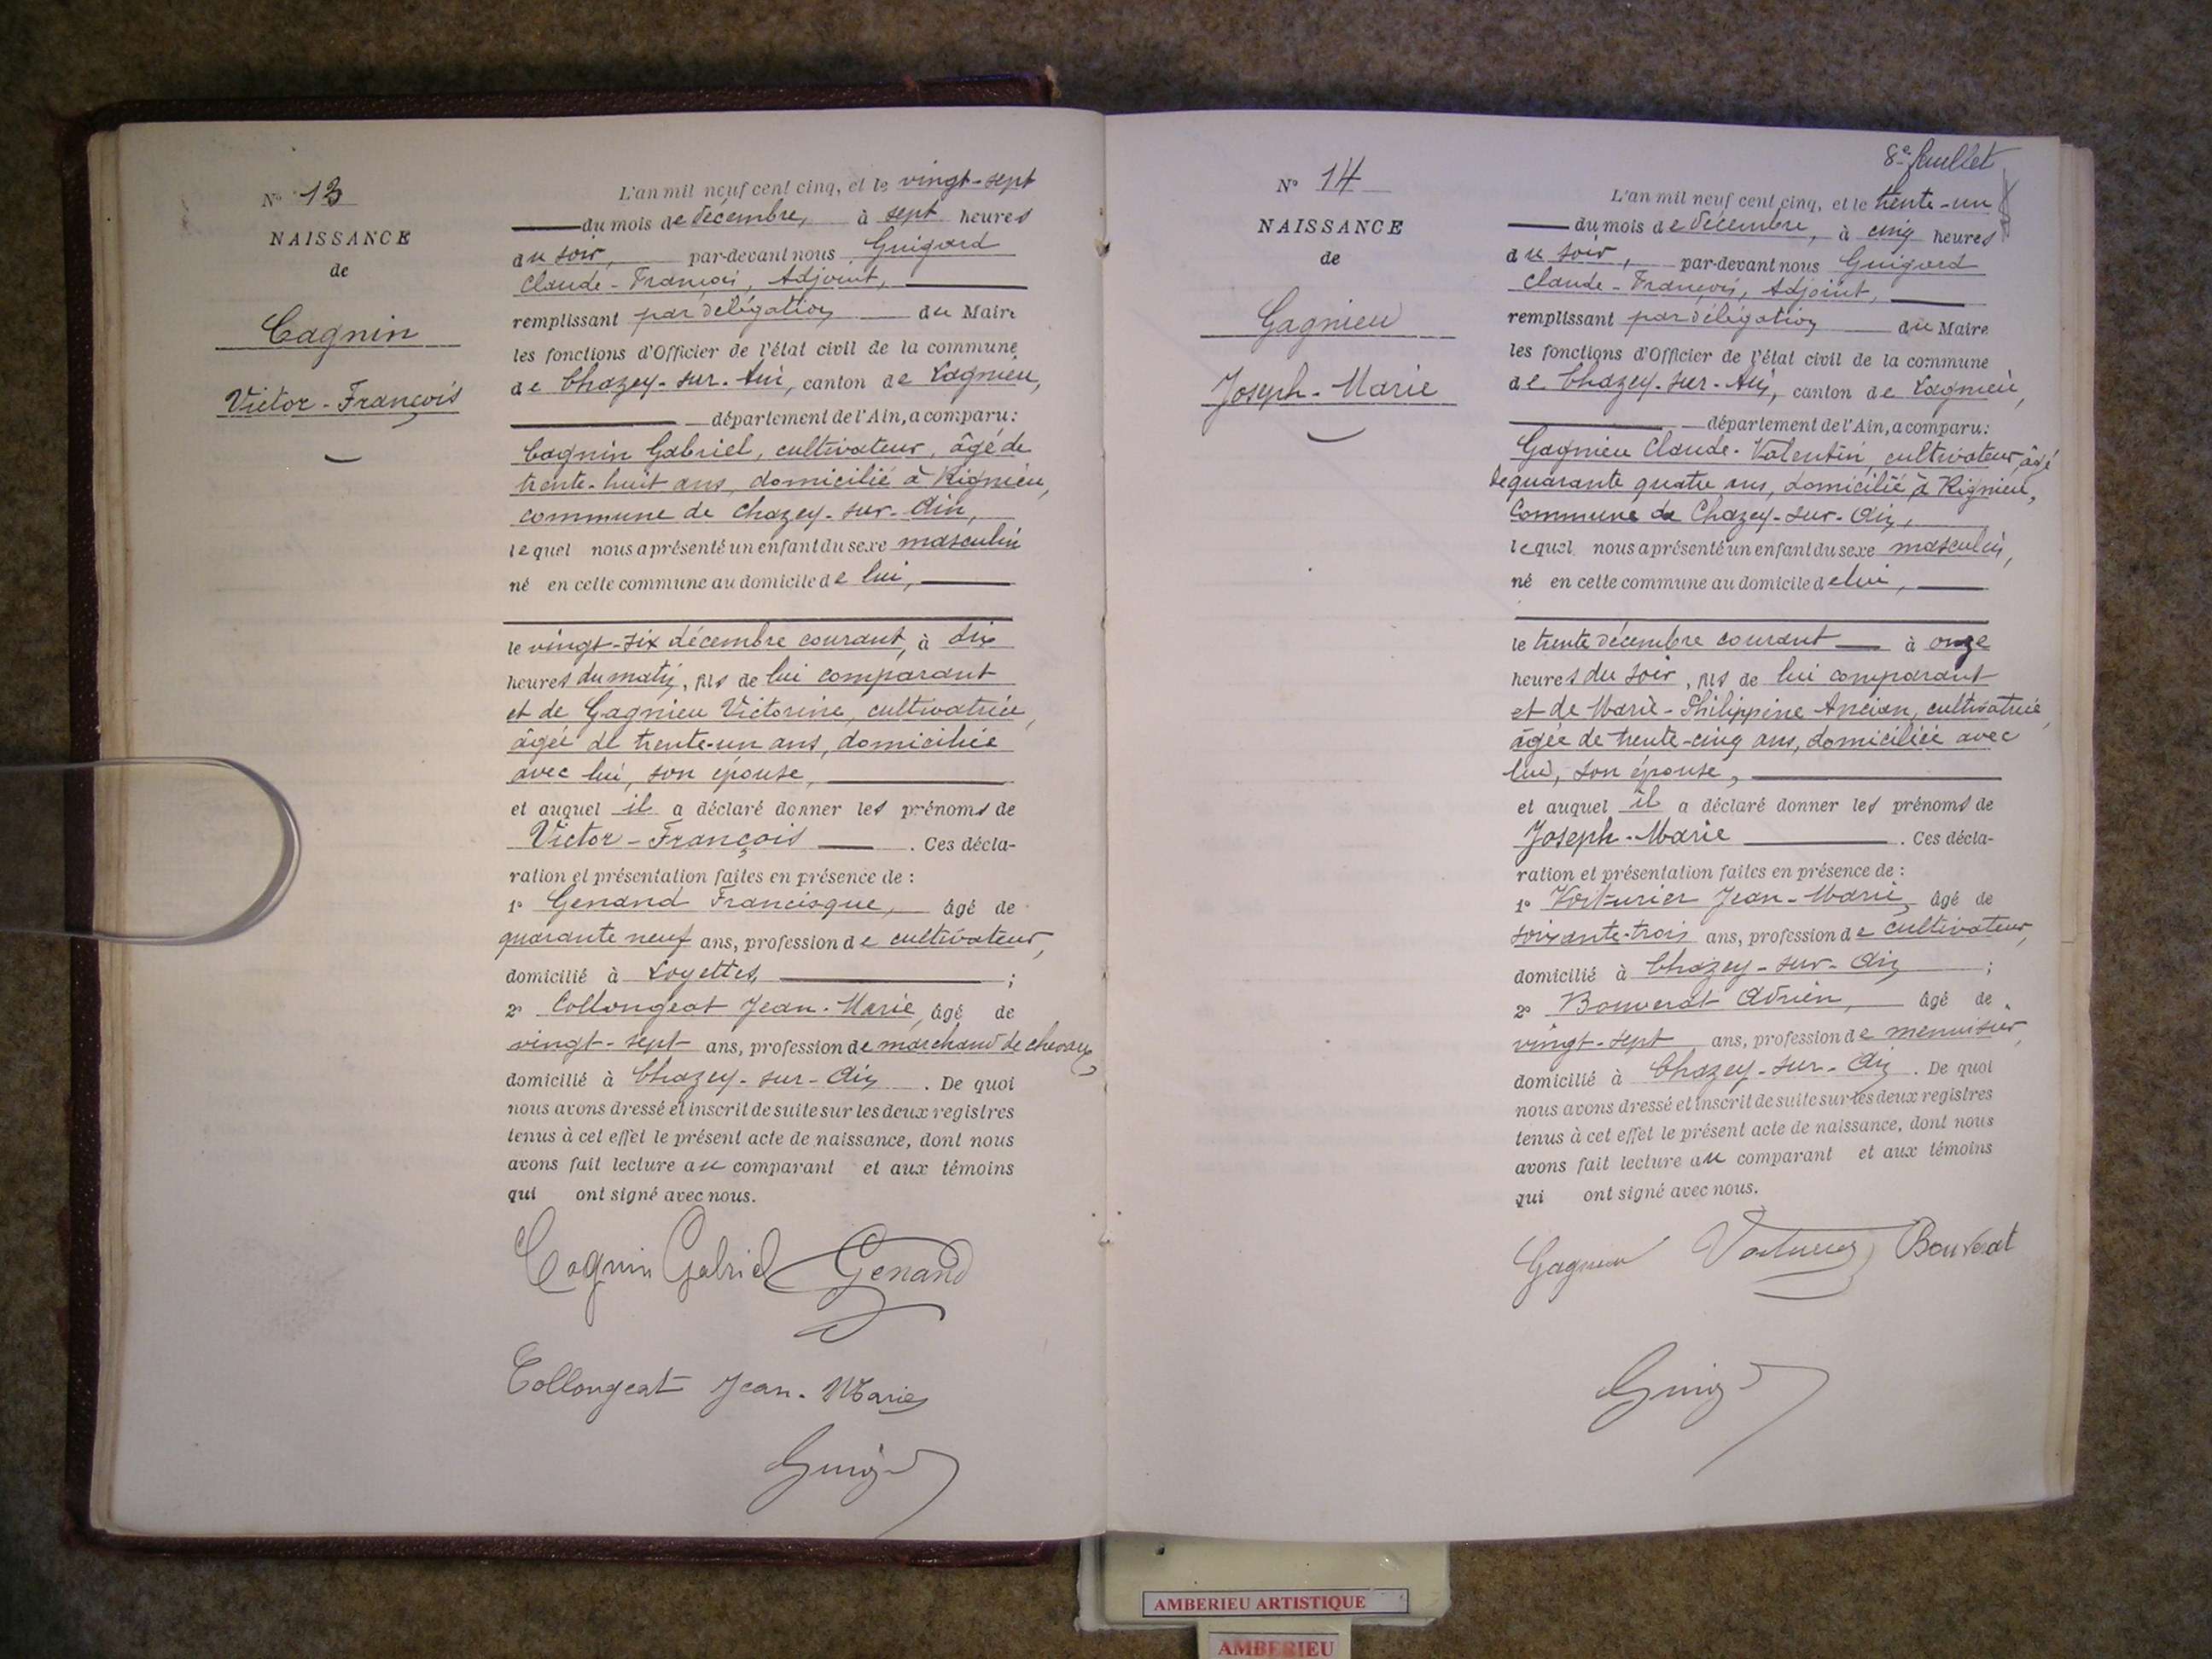 N° 13
NAISSANCE
de
Cagnin
Victor-François
L'an mil neuf cent cinq, et le vingt-sept
du mois de décembre, à sept heures
du soir, par-devant nous Guigard
Claude-François, Adjoint,
remplissant par délégation du Maire
les fonctions d'Officier de l'état civil de la commune
de Chazey-sur-Ain, canton de Lagnieu,
département de l'Ain, a comparu:
Cagnin Gabriel, cultivateur, âgé de
trente-huit ans, domicilié à Rignieu,
commune de Chazey-sur-Ain,
lequel nous a présenté un enfant du sexe masculin
né en cette commune au domicile de lui,
le vingt-six décembre courant, à dix
heures du matin, fils de lui comparant
et de Gagnieu Victorine, cultivatrice,
âgée de trente-un ans, domiciliée
avec lui, son épouse,
et auquel il a déclaré donner les prénoms de
Victor-François . Ces décla-
ration et présentation faites en présence de :
1° Genand Francisque, âgé de
quarante neuf ans, profession de cultivateur,
domicilié à Loyettes, ;
2° Collongeat Jean-Marie, âgé de
vingt-sept ans, profession de marchand de chevaux
domicilié à Chazey-sur-Ain . De quoi
nous avons dressé et inscrit de suite sur les deux registres
tenus à cet effet le présent acte de naissance, dont nous
avons fait lecture au comparant et aux témoins
qui ont signé avec nous.
Cagnin Gabriel Genand
Collongeat Jean-Marie
Guigard
8e feuillet
N° 14
NAISSANCE
de
Gagnieu
Joseph-Marie
L'an mil neuf cent cinq, et le trente-un
du mois de décembre, à cinq heures
du soir, par-devant nous Guigard
Claude-François, Adjoint,
remplissant par délégation du Maire
les fonctions d'Officier de l'état civil de la commune
de Chazey-sur-Ain, canton de Lagnieu,
département de l'Ain, a comparu:
Gagnieu Claude-Valentin, cultivateur, âgé
de quarante quatre ans, domicilié à Rignieu,
Commune de Chazey-sur-Ain,
lequel nous a présenté un enfant du sexe masculin,
né en cette commune au domicile de lui,
le trente décembre courant à onze
heures du soir, fils de lui comparant
et de Marie-Philippine Ancian, cultivatrice,
âgée de trente-cinq ans, domiciliée avec
lui, son épouse,
et auquel il a déclaré donner les prénoms de
Joseph-Marie . Ces décla-
ration et présentation faites en présence de :
1° Voiturier Jean-Marie, âgé de
soixante-trois ans, profession de cultivateur,
domicilié à Chazey-sur-Ain ;
2° Bouverat Adrien, âgé de
vingt-sept ans, profession de menuisier,
domicilié à Chazey-sur-Ain . De quoi
nous avons dressé et inscrit de suite sur les deux registres
tenus à cet effet le présent acte de naissance, dont nous
avons fait lecture au comparant et aux témoins
qui ont signé avec nous.
Gagnieu Voiturier Bouverat
Guigard
AMBERIEU ARTISTIQUE
AMBERIEU